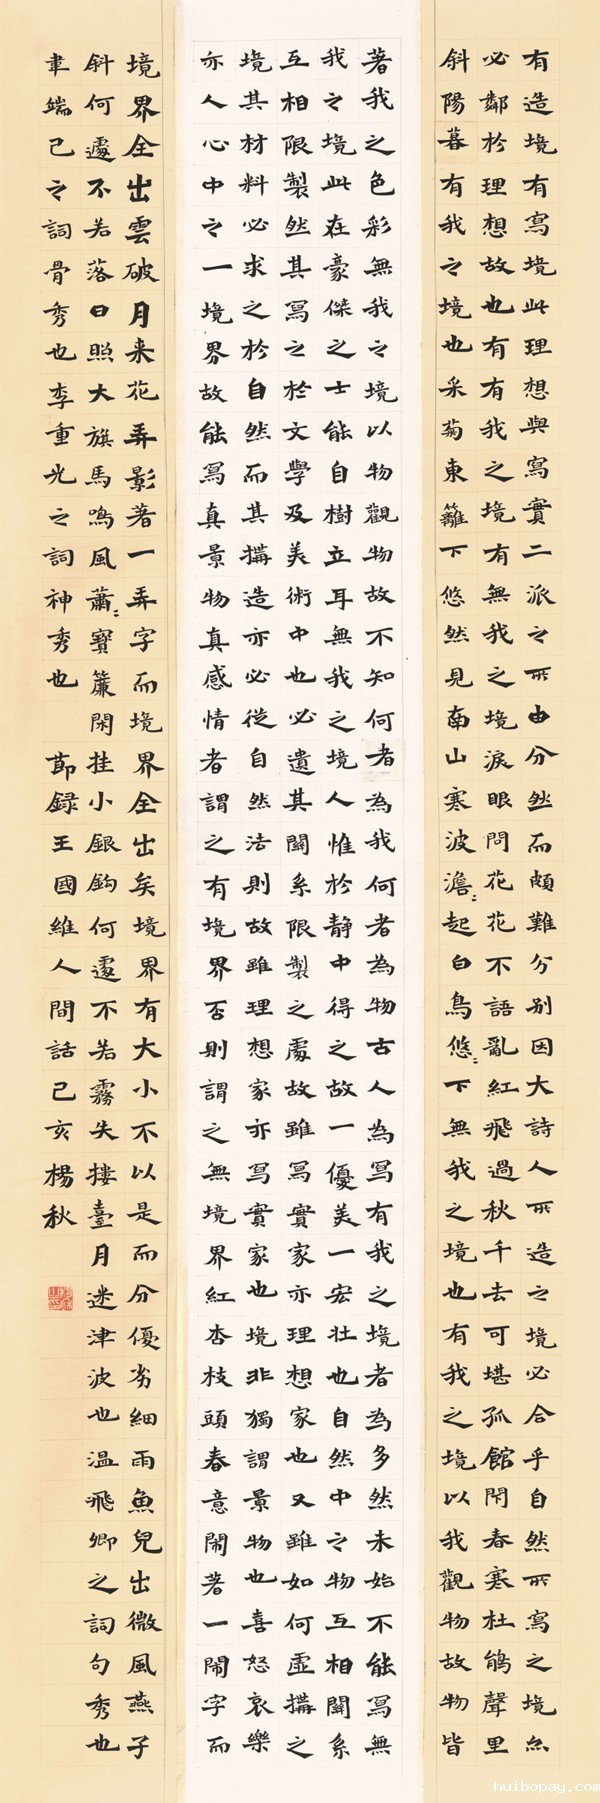 有造境有寫境此理想與寫實二派之所由分然而頗難分别因大詩人所造之境必合乎自然所寫之境亦
必鄰於理想故也有有我之境有無我之境淚眼問花花不語亂紅飛過秋千去可堪孤館閑春寒杜鵑聲里
斜陽暮有我之境也采菊東籬下悠然見南山寒波澹〻起白鳥悠〻下無我之境也有我之境以我觀物故物皆
著我之色彩無我之境以物觀物故不知何者為我何者為物古人為寫有我之境者為多然未始不能寫無
我之境此在豪傑之士能自樹立耳無我之境人惟於静中得之故一優美一宏壯也自然中之物互相關系
互相限製然其寫之於文學及美術中也必遺其關系限製之處故雖寫實家亦理想家也又雖如何虛構之
境其材料必求之於自然而其構造亦必從自然法則故雖理想家亦寫實家也境非獨謂景物也喜怒哀樂
亦人心中之一境界故能寫真景物真感情者謂之有境界否則謂之無境界紅杏枝頭春意鬧著一鬧字而
境界全出雲破月来花弄影著一弄字而境界全出矣境界有大小不以是而分優劣細雨魚兒出微風燕子
斜何遽不若落日照大旗馬鳴風蕭〻寶簾閑挂小銀鈎何遽不若霧失樓臺月迷津波也温飛卿之詞句秀也
韋端己之詞骨秀也李重光之詞神秀也 節録王國維人間話己亥楊秋
huibopay.com